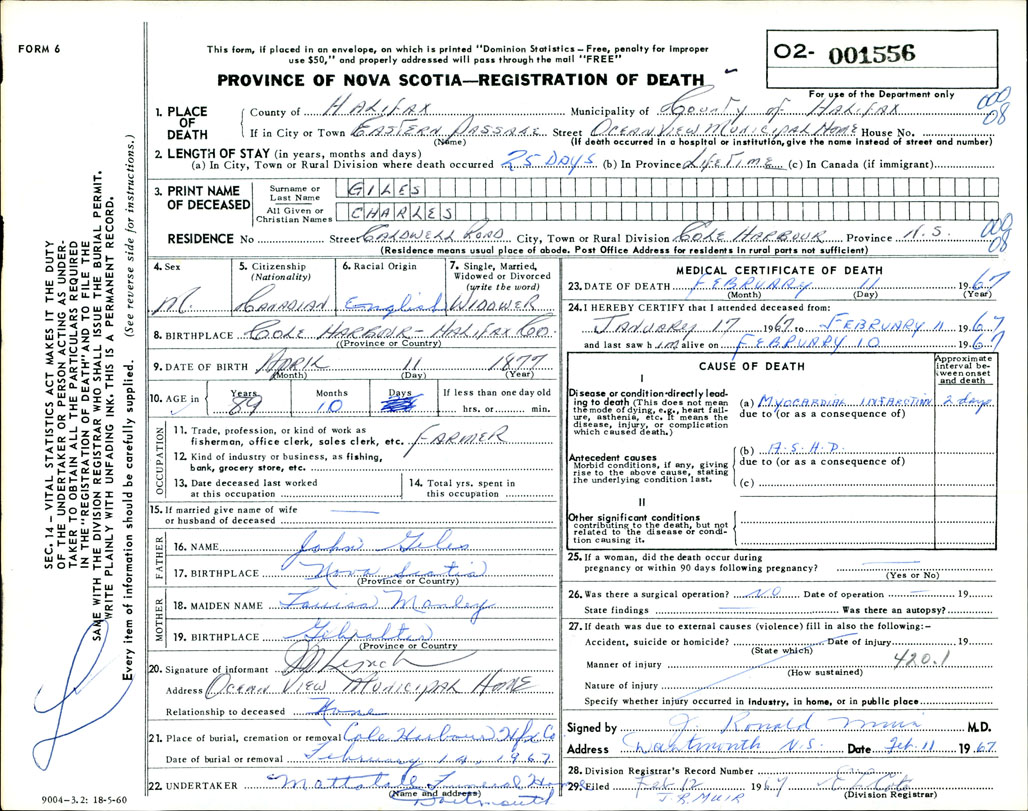 FORM 6
This form, if placed in an envelope, on which is printed "Dominion Statistics – Free, penalty for improper
use $50," and properly addressed will pass through the mail "FREE"
PROVINCE OF NOVA SCOTIA—REGISTRATION OF DEATH
02- 001556
For use of the Department only
SEC. 14 – VITAL STATISTICS ACT MAKES IT THE DUTY
OF THE UNDERTAKER OR PERSON ACTING AS UNDER-
TAKER TO OBTAIN ALL THE PARTICULARS REQUIRED
IN THE "REGISTRATION OF DEATH" AND TO FILE THE
SAME WITH THE DIVISION REGISTRAR WHO SHALL ISSUE THE BURIAL PERMIT.
WRITE PLAINLY WITH UNFADING INK. THIS IS A PERMANENT RECORD.
Every item of information should be carefully supplied. (See reverse side for instructions.)
1. PLACE OF DEATH
County of HALIFAX Municipality of COUNTY OF HALIFAX 000 08
If in City or Town EASTERN PASSAGE Street OCEAN VIEW MUNICIPAL HOME House No.
(Name) (If death occurred in a hospital or institution, give the name instead of street and number)
2. LENGTH OF STAY (in years, months and days)
(a) In City, Town or Rural Division where death occurred 25 DAYS (b) In Province LIFETIME (c) In Canada (if immigrant)
3. PRINT NAME OF DECEASED
Surname or Last Name GILES
All Given or Christian Names CHARLES
RESIDENCE No Street CALDWELL ROAD City, Town or Rural Division COLE HARBOUR Province N.S. 000 08
(Residence means usual place of abode. Post Office Address for residents in rural parts not sufficient)
4. Sex 5. Citizenship (Nationality) 6. Racial Origin 7. Single, Married, Widowed or Divorced (write the word)
M. CANADIAN English WIDOWER
8. BIRTHPLACE COLE HARBOUR – HALIFAX CO.
(Province or County)
9. DATE OF BIRTH APRIL 11 1877
(Month) (Day) (Year)
10. AGE in Years 89 Months 10 Days If less than one day old hrs. or min.
OCCUPATION
11. Trade, profession, or kind of work as
fisherman, office clerk, sales clerk, etc. FARMER
12. Kind of industry or business, as fishing,
bank, grocery store, etc.
13. Date deceased last worked
at this occupation
14. Total yrs. spent in
this occupation
15. If married give name of wife
or husband of deceased
FATHER
16. NAME John Giles
17. BIRTHPLACE Nova Scotia
(Province or Country)
MOTHER
18. MAIDEN NAME Louisa Manley
19. BIRTHPLACE Gibralter
(Province or Country
20. Signature of informant Lynch
Address OCEAN VIEW MUNICIPAL HOME
Relationship to deceased None
21. Place of burial, cremation or removal Cole Harbour Hfx Co
Date of burial or removal February 14, 1967
22. UNDERTAKER Funeral Home
(Name and address) Dartmouth
9004–3.2: 18-5-60
MEDICAL CERTIFICATE OF DEATH
23. DATE OF DEATH FEBRUARY 11 1967
(Month) (Day) (Year)
24. I HEREBY CERTIFY that I attended deceased from:
JANUARY 17 1967 to FEBRUARY 11 1967
and last saw him alive on FEBRUARY 10 1967
CAUSE OF DEATH
Approximate interval between onset and death
I
Disease or condition directly lead-
ing to death (This does not mean
the mode of dying, e.g., heart fail-
ure, asthenia, etc. It means the
disease, injury, or complication
which caused death.)
(a) MYOCARDIAL INFARCTION 2 days
due to (or as a consequence of)
Antecedent causes
Morbid conditions, if any, giving
rise to the above cause, stating
the underlying condition last.
(b) A.S.H.D.
due to (or as a consequence of)
(c)
II
Other significant conditions
contributing to the death, but not
related to the disease or condi-
tion causing it.
25. If a woman, did the death occur during
pregnancy or within 90 days following pregnancy?
(Yes or No)
26. Was there a surgical operation? NO Date of operation 19
State findings Was there an autopsy?
27. If death was due to external causes (violence) fill in also the following:–
Accident, suicide or homicide? Date of injury 19
(State which)
Manner of injury 420.1
(How sustained)
Nature of injury
Specify whether injury occurred in industry, in home, or in public place
Signed by J. Ronald Muir M.D.
Address Dartmouth N.S. Date Feb. 11 1967
28. Division Registrar's Record Number
29. Filed Feb 12 1967
J.R. MUIR (Division Registrar)